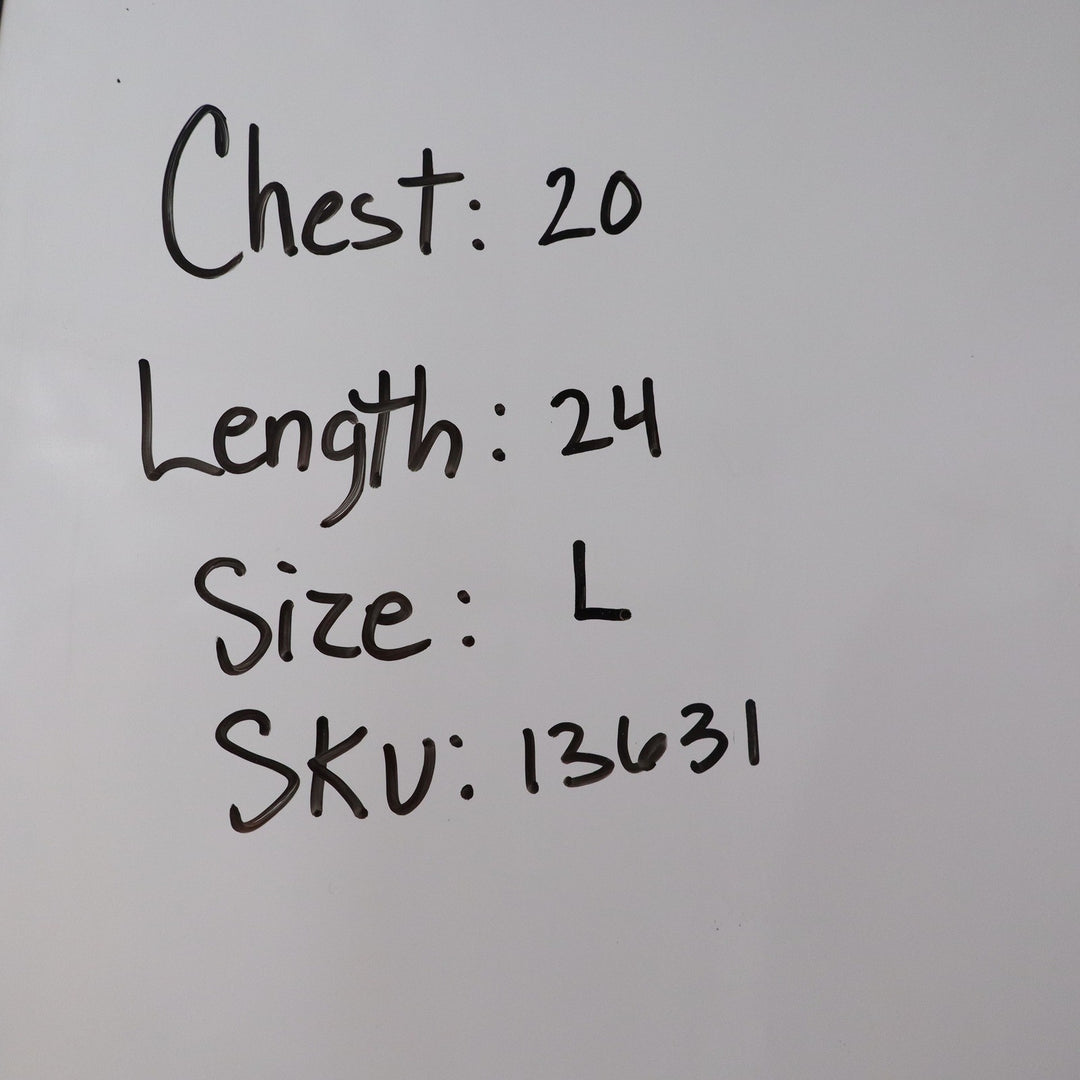 Chest: 20
Length: 24
Size: L
SKU: 13631